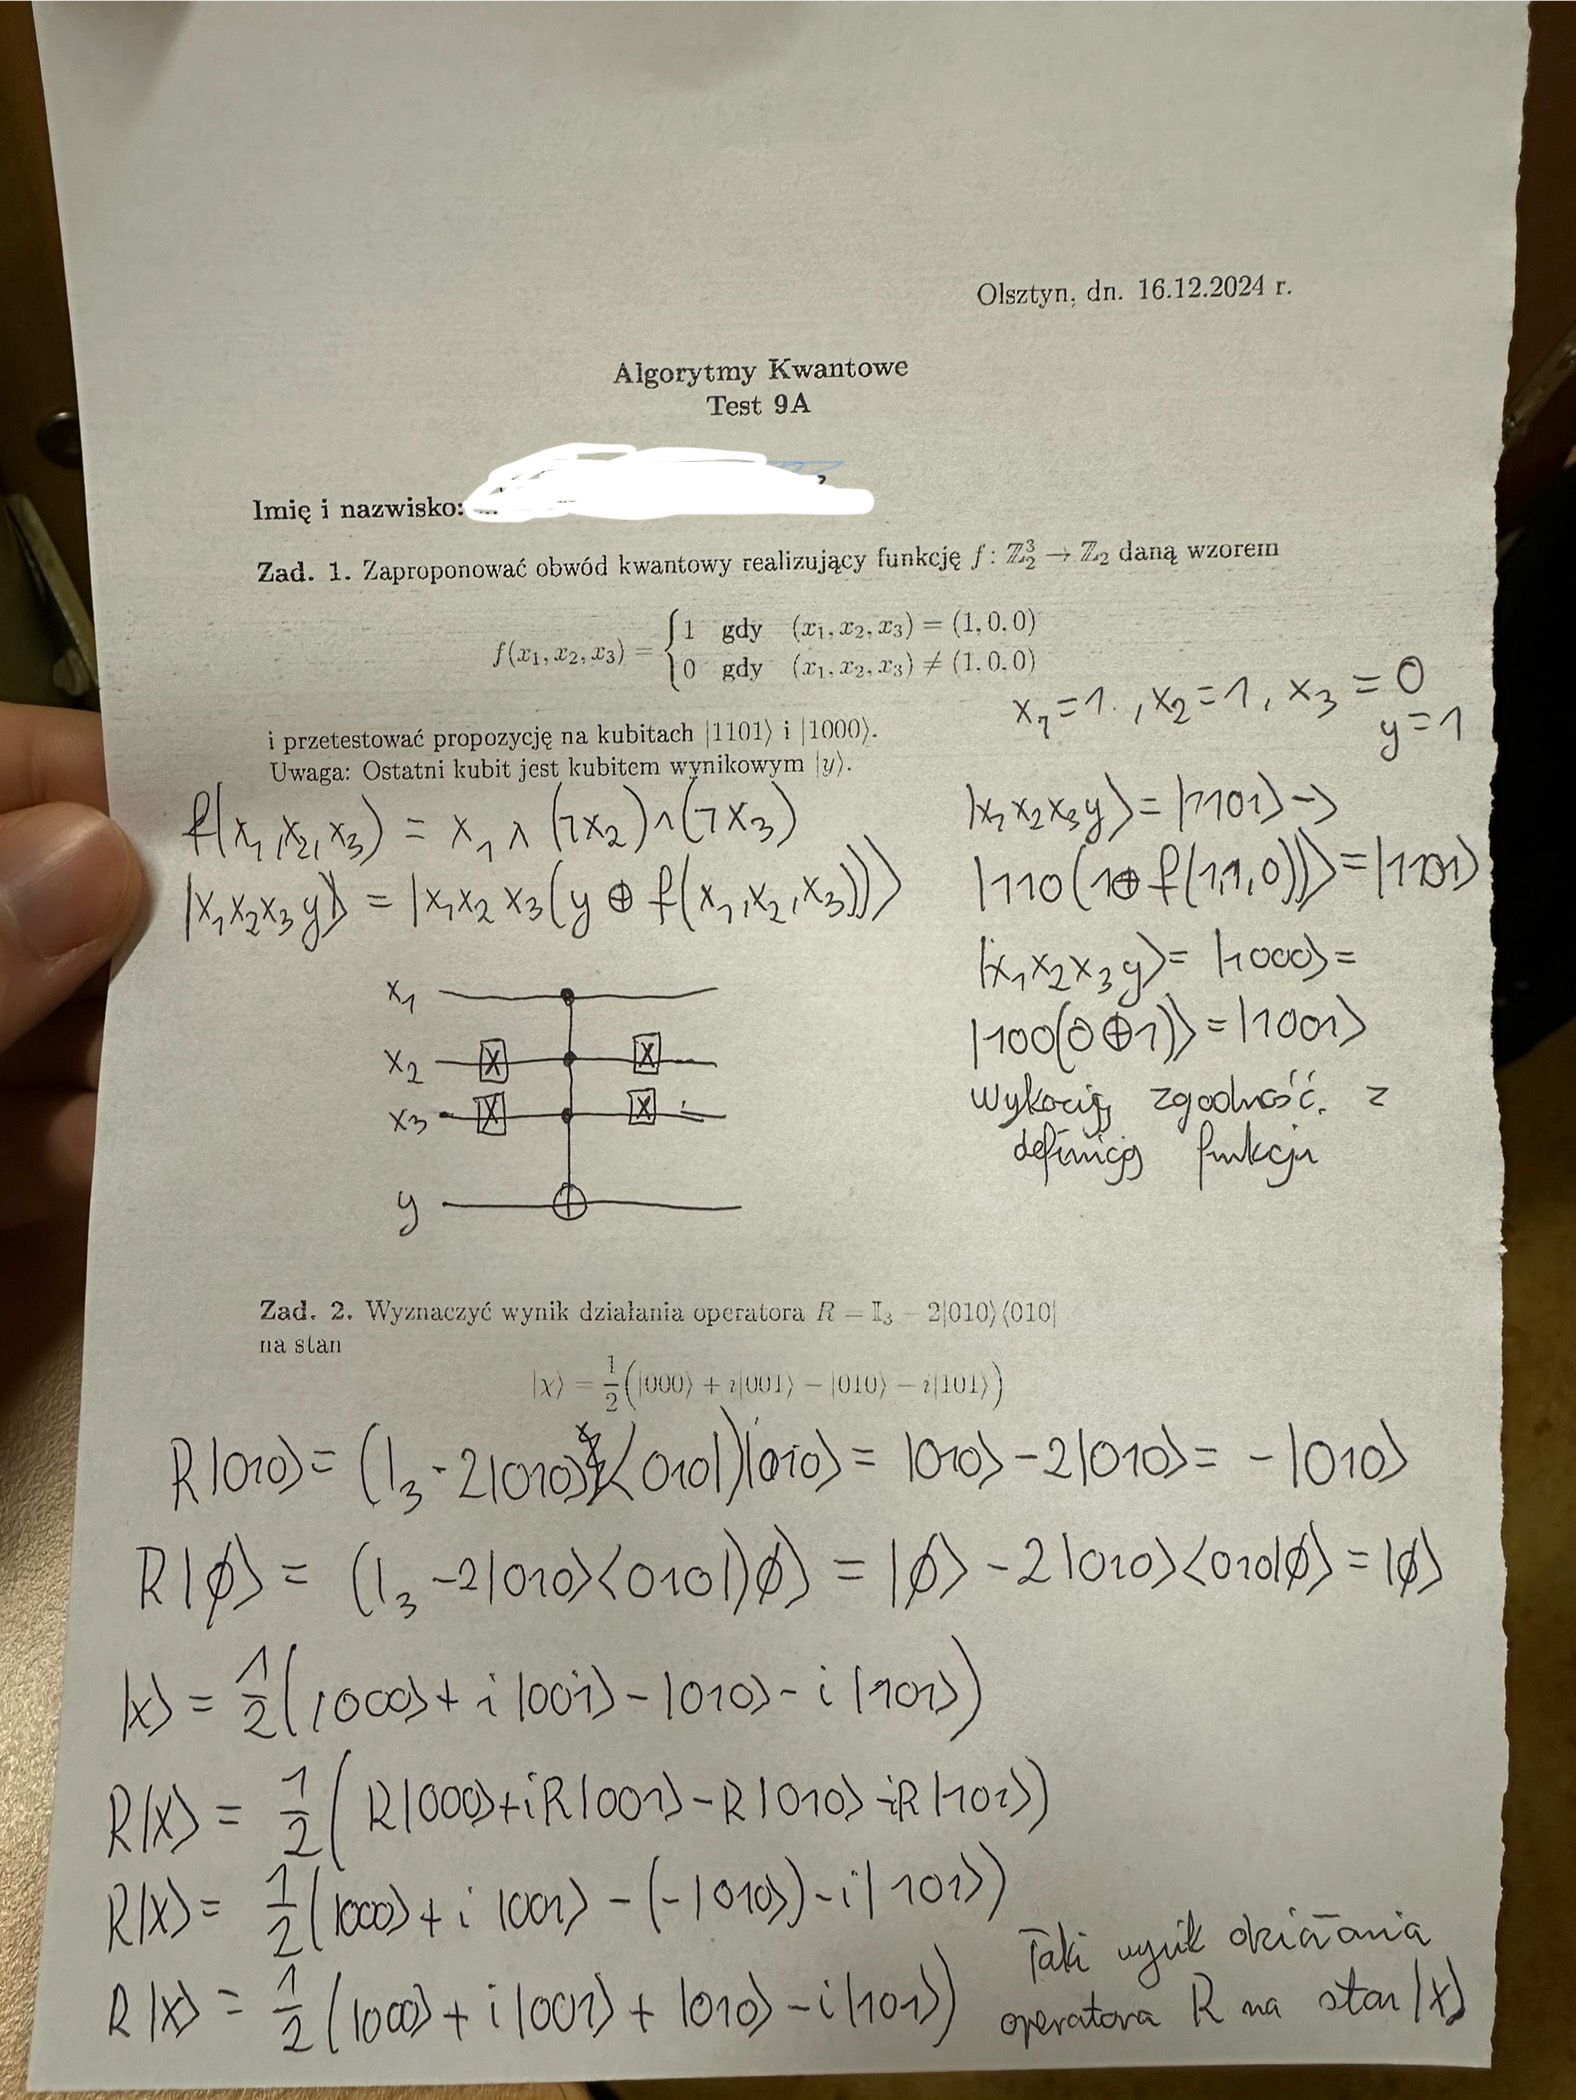 Olsztyn, dn. 16.12.2024 r.
Algorytmy Kwantowe
Test 9A
Imię i nazwisko:
Zad. 1. Zaproponować obwód kwantowy realizujący funkcję f: ℤ₂³ → ℤ₂ daną wzorem
f(x₁, x₂, x₃) = { 1 gdy (x₁, x₂, x₃) = (1, 0, 0)
0 gdy (x₁, x₂, x₃) ≠ (1, 0, 0)
i przetestować propozycję na kubitach |1101⟩ i |1000⟩.
Uwaga: Ostatni kubit jest kubitem wynikowym |y⟩.
x₁=1, x₂=1, x₃=0
y=1
f(x₁, x₂, x₃) = x₁ ∧ (¬x₂) ∧ (¬x₃)
|x₁x₂x₃y⟩ = |x₁x₂x₃(y ⊕ f(x₁, x₂, x₃))⟩
|x₁x₂x₃y⟩ = |1101⟩ →
|110(1⊕f(1,1,0))⟩ = |1101⟩
|x₁x₂x₃y⟩ = |1000⟩ =
|100(0⊕1)⟩ = |1001⟩
zgodność z
definicją funkcji
x₁
x₂ X X
x₃ X X
y
Zad. 2. Wyznaczyć wynik działania operatora R = 𝕀₃ − 2|010⟩⟨010|
na stan
|χ⟩ = 1/2(|000⟩ + i|001⟩ − |010⟩ − i|101⟩)
R|010⟩ = (I₃ - 2|010⟩⟨010|)|010⟩ = |010⟩ - 2|010⟩ = -|010⟩
R|ϕ⟩ = (I₃ - 2|010⟩⟨010|)ϕ⟩ = |ϕ⟩ - 2|010⟩⟨010|ϕ⟩ = |ϕ⟩
|x⟩ = 1/2(|000⟩ + i|001⟩ - |010⟩ - i|101⟩)
R|x⟩ = 1/2(R|000⟩ + iR|001⟩ - R|010⟩ - iR|101⟩)
R|x⟩ = 1/2(|000⟩ + i|001⟩ - (-|010⟩) - i|101⟩)
R|x⟩ = 1/2(|000⟩ + i|001⟩ + |010⟩ - i|101⟩)
Taki wynik działania
operatora R na stan |x⟩